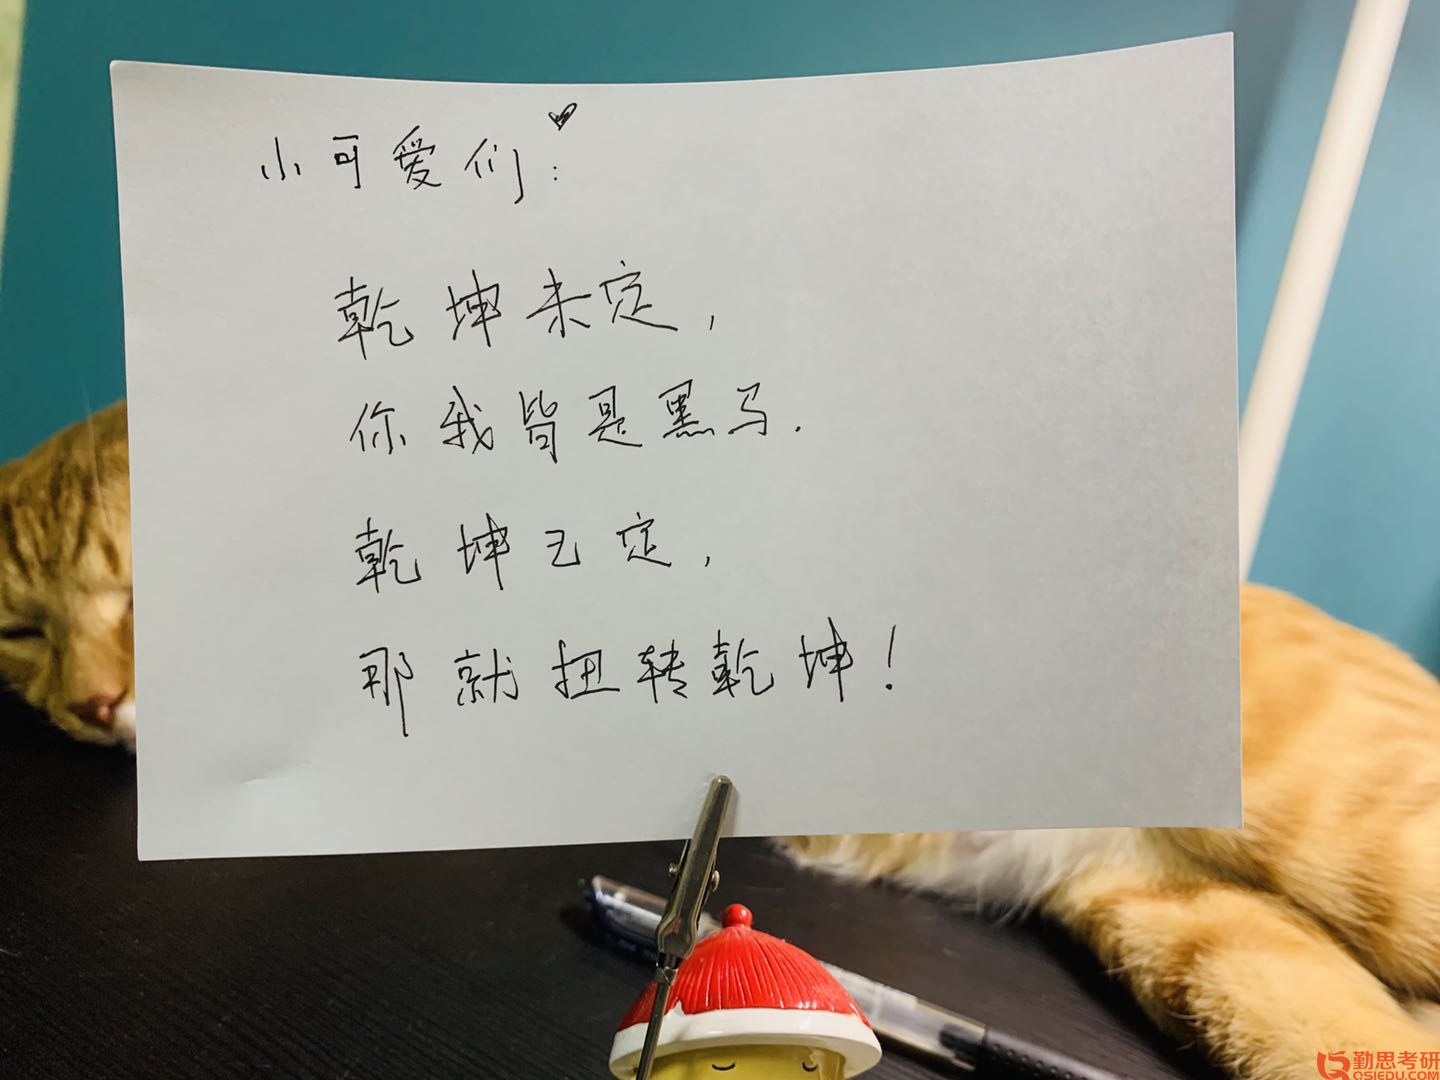 小可爱们:
乾坤未定,
你我皆是黑马.
乾坤已定,
那就扭转乾坤!
勤思考研
QSIEDU.COM